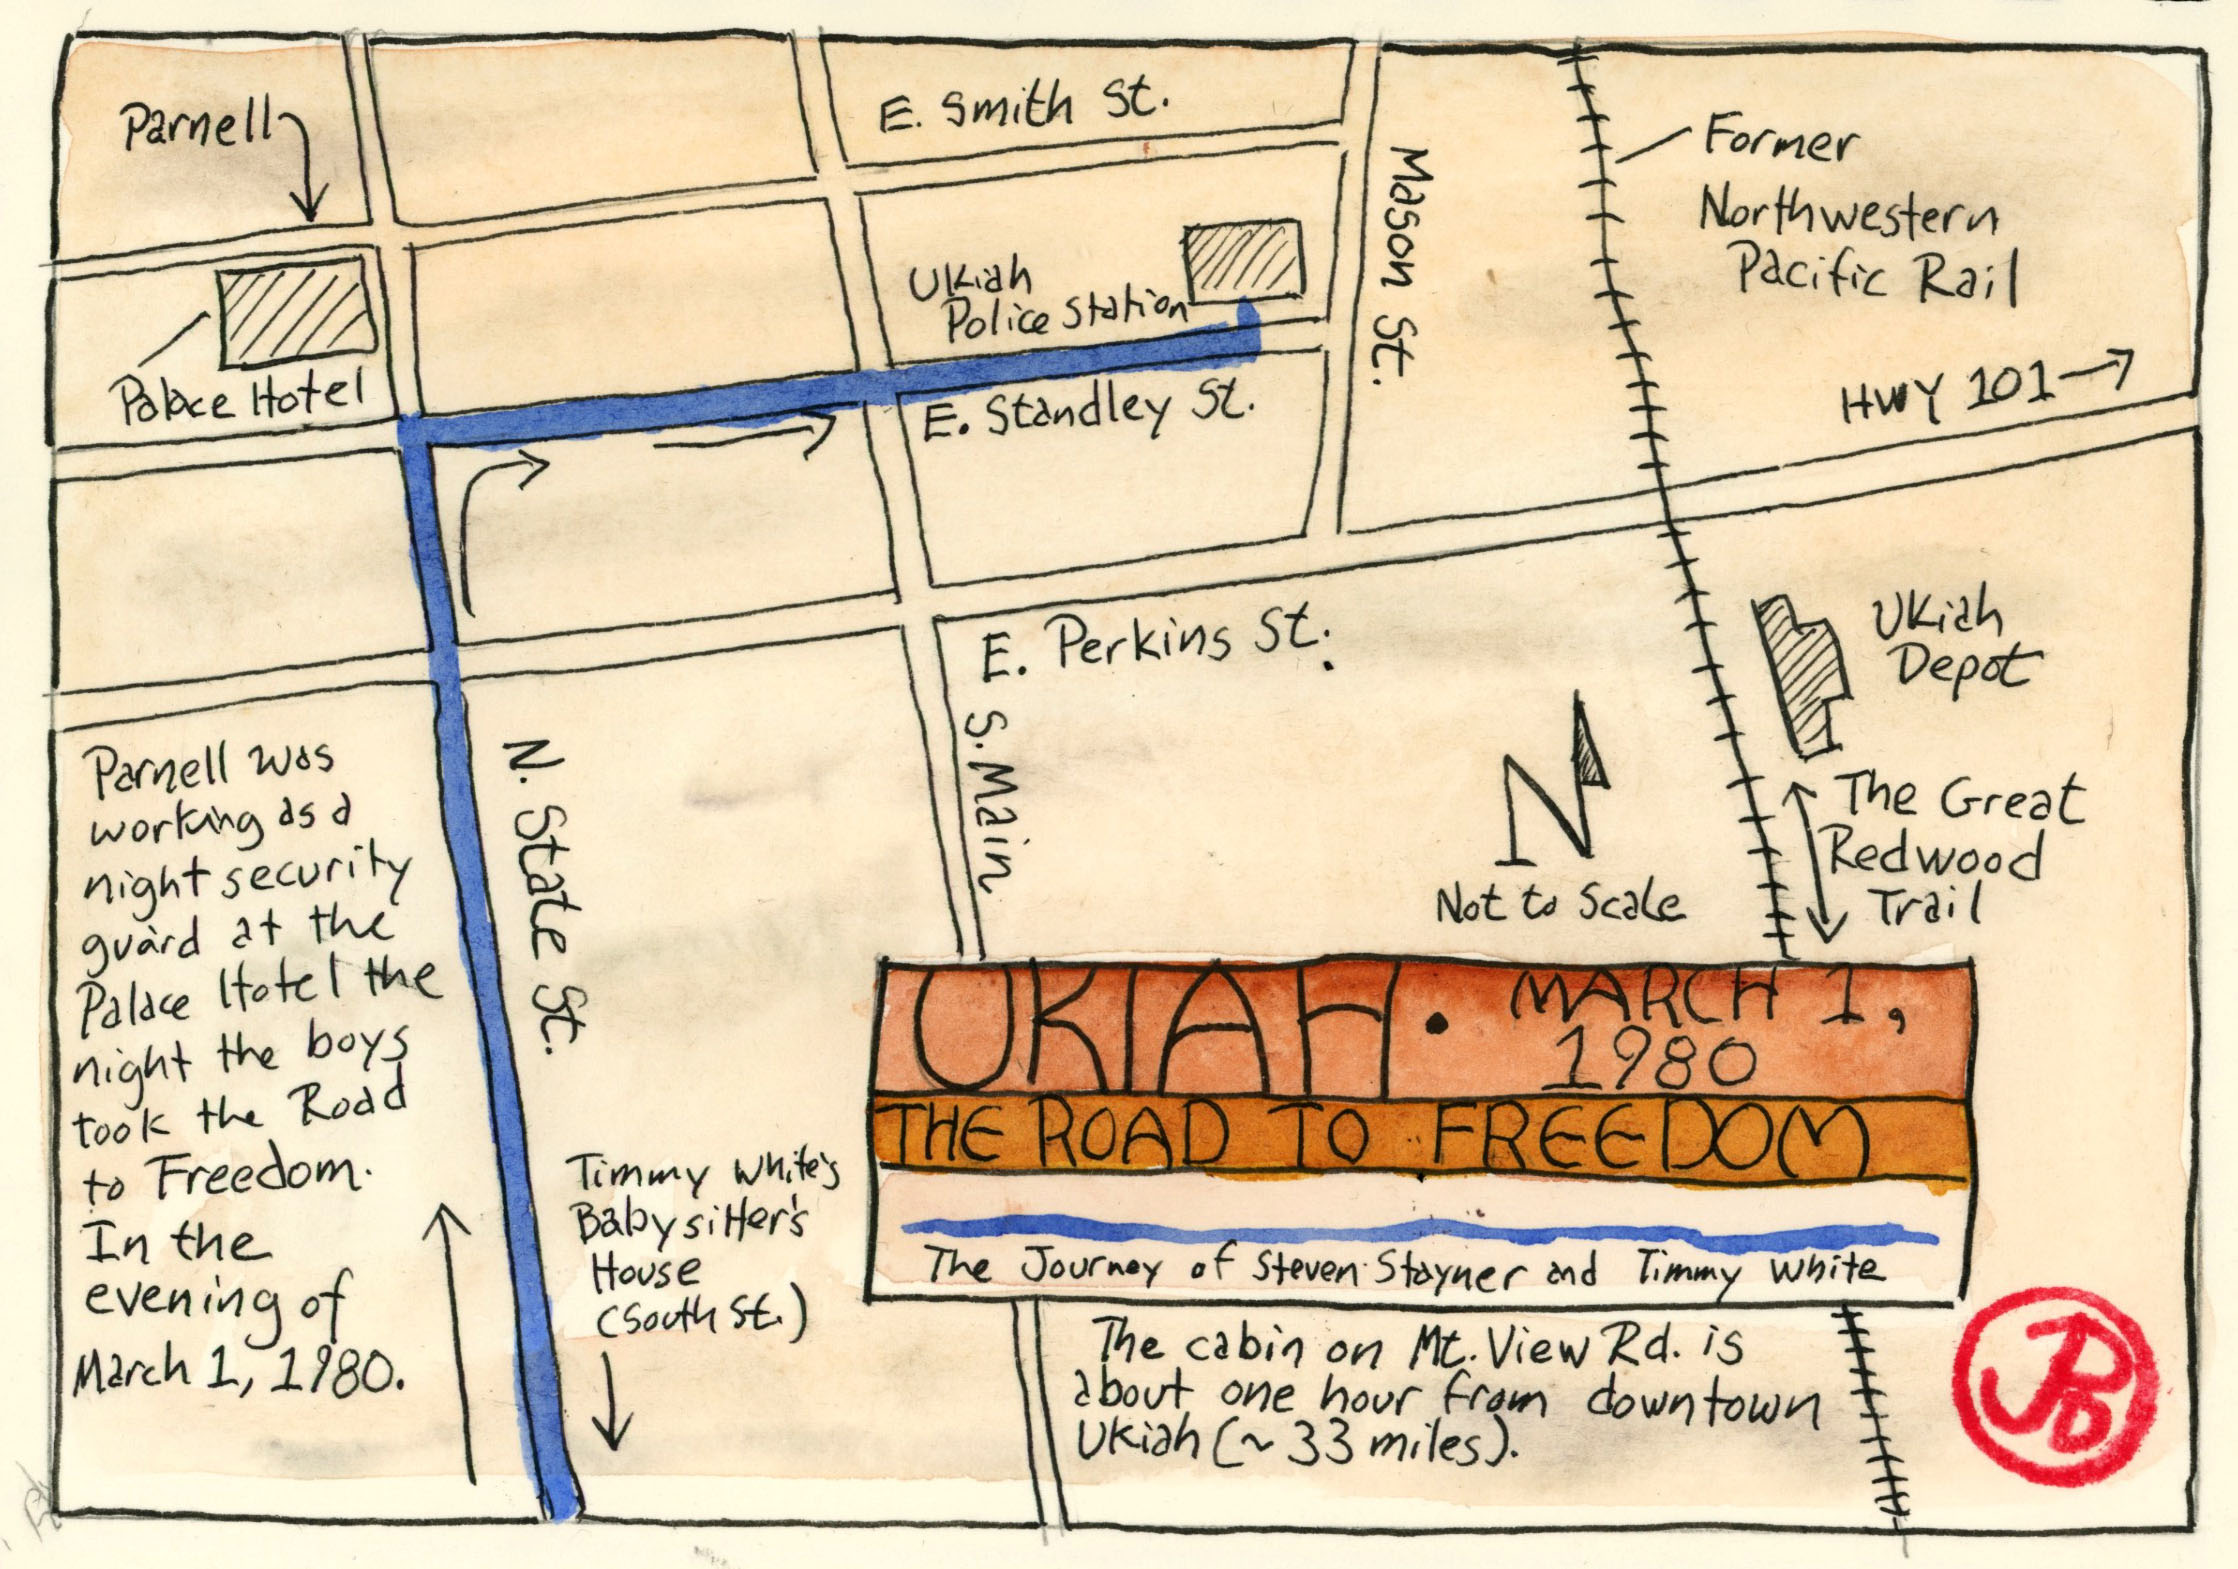 Parnell
E. Smith St.
Mason St.
Former
Northwestern
Pacific Rail
Ukiah
Police Station
Palace Hotel
E. Standley St.
HWY 101
E. Perkins St.
Ukiah
Depot
S. Main
N. State St.
N
Not to Scale
The Great
Redwood
Trail
Parnell was
working as a
night security
guard at the
Palace Hotel the
night the boys
took the Road
to Freedom.
In the
evening of
March 1, 1980.
Timmy White's
Babysitter's
House
(South St.)
UKIAH. MARCH 1,
1980
THE ROAD TO FREEDOM
The Journey of Steven Stayner and Timmy White
The cabin on Mt. View Rd. is
about one hour from downtown
Ukiah (~33 miles).